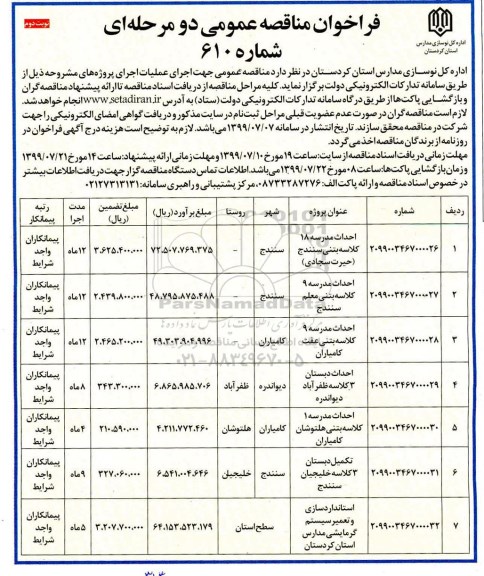 نوبت دوم
فراخوان مناقصه عمومی دو مرحله‌ای
شماره ۶۱۰
اداره کل نوسازی مدارس استان کردستان
اداره کل نوسازی مدارس استان کردستان در نظر دارد مناقصه عمومی جهت اجرای عملیات اجرای پروژه‌های مشروحه ذیل از
طریق سامانه تدارکات الکترونیکی دولت برگزار نماید. کلیه مراحل مناقصه از دریافت اسناد مناقصه تا ارائه پیشنهاد مناقصه گران
و بازگشایی پاکت‌ها از طریق درگاه سامانه تدارکات الکترونیکی دولت (ستاد) به آدرس www.setadiran.ir انجام خواهد شد.
لازم است مناقصه گران در صورت عدم عضویت قبلی مراحل ثبت‌نام در سایت مذکور و دریافت گواهی امضای الکترونیکی را جهت
شرکت در مناقصه محقق سازند. تاریخ انتشار در سامانه ۱۳۹۹/۰۷/۰۷ می‌باشد. لازم به توضیح است هزینه درج آگهی فراخوان در
روزنامه از برندگان مناقصه اخذ می‌گردد.
مهلت زمانی دریافت اسناد مناقصه از سایت: ساعت ۱۹ مورخ ۱۳۹۹/۰۷/۱۰ و مهلت زمانی ارائه پیشنهاد: ساعت ۱۴ مورخ ۱۳۹۹/۰۷/۲۱
و زمان بازگشایی پاکت‌ها: ساعت ۰۸ مورخ ۱۳۹۹/۰۷/۲۲ می‌باشد. اطلاعات تماس دستگاه مناقصه گزار جهت دریافت اطلاعات بیشتر
در خصوص اسناد مناقصه و ارائه پاکت الف: ۰۸۷۳۳۲۸۷۲۷۶، مرکز پشتیبانی و راهبری سامانه: ۰۲۱۲۷۳۱۳۱۳۱
ردیف شماره عنوان پروژه شهر روستا مبلغ برآورد (ریال) مبلغ تضمین (ریال) مدت اجرا رتبه پیمانکار
۱ ۲۰۹۹۰۰۳۴۶۷۰۰۰۰۲۶ احداث مدرسه ۱۸ کلاسه بتنی سنندج (حیرت سجادی) سنندج - ۷۲.۵۰۷.۷۶۹.۳۷۵ ۳.۶۲۵.۴۰۰.۰۰۰ ۱۲ماه پیمانکاران واجد شرایط
۲ ۲۰۹۹۰۰۳۴۶۷۰۰۰۰۲۷ احداث مدرسه ۹ کلاسه بتنی معلم سنندج سنندج - ۴۸.۷۹۵.۸۷۵.۴۸۸ ۲.۴۳۹.۸۰۰.۰۰۰ ۱۲ماه پیمانکاران واجد شرایط
۳ ۲۰۹۹۰۰۳۴۶۷۰۰۰۰۲۸ احداث مدرسه ۹ کلاسه بتنی عفت کامیاران کامیاران - ۴۹.۳۰۳.۹۰۴.۹۹۶ ۲.۴۶۵.۲۰۰.۰۰۰ ۱۲ماه پیمانکاران واجد شرایط
۴ ۲۰۹۹۰۰۳۴۶۷۰۰۰۰۲۹ احداث دبستان ۳ کلاسه ظفرآباد دیواندره دیواندره ظفرآباد ۶.۸۶۵.۹۸۵.۷۰۶ ۳۴۳.۳۰۰.۰۰۰ ۸ماه پیمانکاران واجد شرایط
۵ ۲۰۹۹۰۰۳۴۶۷۰۰۰۰۳۰ احداث مدرسه ۱ کلاسه بتنی هلتوشان کامیاران کامیاران هلتوشان ۴.۲۱۱.۷۷۲.۴۶۰ ۲۱۰.۵۹۰.۰۰۰ ۴ماه پیمانکاران واجد شرایط
۶ ۲۰۹۹۰۰۳۴۶۷۰۰۰۰۳۱ تکمیل دبستان ۳ کلاسه خلیجیان سنندج سنندج خلیجیان ۶.۵۴۱.۰۰۴.۶۴۶ ۳۲۷.۰۶۰.۰۰۰ ۹ماه پیمانکاران واجد شرایط
۷ ۲۰۹۹۰۰۳۴۶۷۰۰۰۰۳۲ استانداردسازی و تعمیر سیستم گرمایشی مدارس استان کردستان سطح استان ۶۴.۱۵۳.۵۲۳.۱۷۹ ۳.۲۰۷.۷۰۰.۰۰۰ ۵ماه پیمانکاران واجد شرایط
ParsNamadData
۰۲۱-۸۸۳۴۹۶۷۰-۵